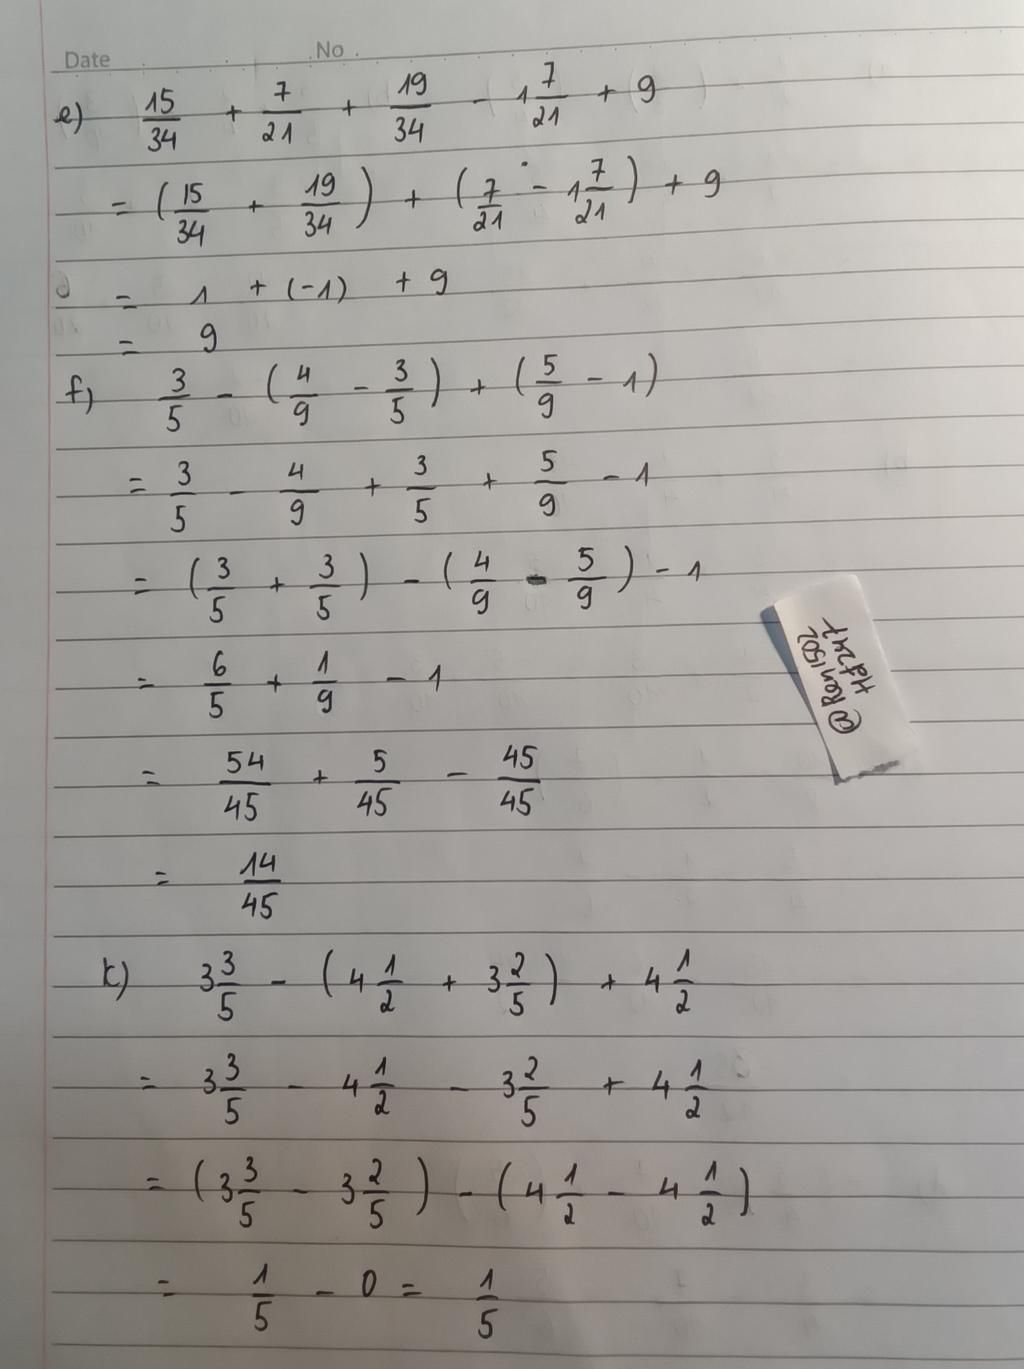 Date No.
e) 15/34 + 7/21 + 19/34 - 1 7/21 + 9
= (15/34 + 19/34) + (7/21 - 1 7/21) + 9
= 1 + (-1) + 9
= 9
f) 3/5 - (4/9 - 3/5) + (5/9 - 1)
= 3/5 - 4/9 + 3/5 + 5/9 - 1
= (3/5 + 3/5) - (4/9 - 5/9) - 1
= 6/5 + 1/9 - 1
= 54/45 + 5/45 - 45/45
= 14/45
k) 3 3/5 - (4 1/2 + 3 2/5) + 4 1/2
= 3 3/5 - 4 1/2 - 3 2/5 + 4 1/2
= (3 3/5 - 3 2/5) - (4 1/2 - 4 1/2)
= 1/5 - 0 = 1/5
@Ren1502